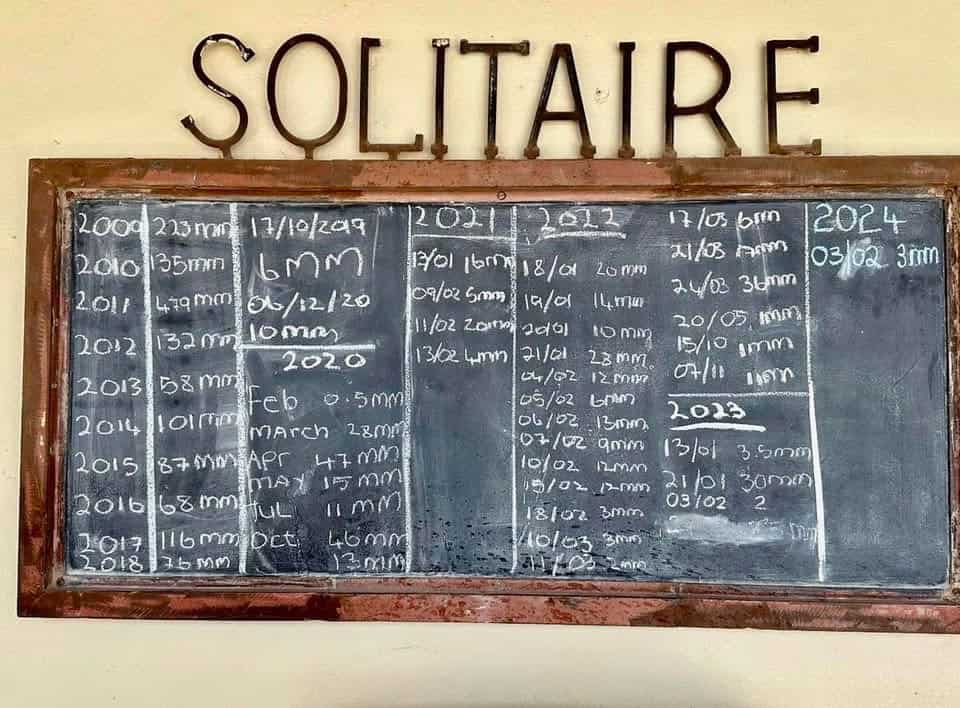 SOLITAIRE
2009 223mm
2010 135mm
2011 479mm
2012 132mm
2013 58mm
2014 101mm
2015 87mm
2016 68mm
2017 116mm
2018 76mm
17/10/2019
6MM
06/12/20
10mm
2020
Feb 0.5mm
MARCH 28mm
Apr 47mm
MAY 15mm
JUL 11mm
Oct 46mm
13mm
2021
13/01 16mm
09/02 5mm
11/02 20mm
13/02 4mm
2022
18/01 20mm
19/01 14mm
20/01 10mm
21/01 28mm
04/02 12mm
05/02 6mm
06/02 13mm
07/02 9mm
10/02 12mm
15/02 12mm
18/02 3mm
10/03 3mm
11/03 2mm
17/03 6mm
21/03
24/03 36mm
20/05 1mm
15/10 1mm
07/11 11mm
2023
13/01 3.5mm
21/01 30mm
03/02 2
mm
2024
03/02 3mm